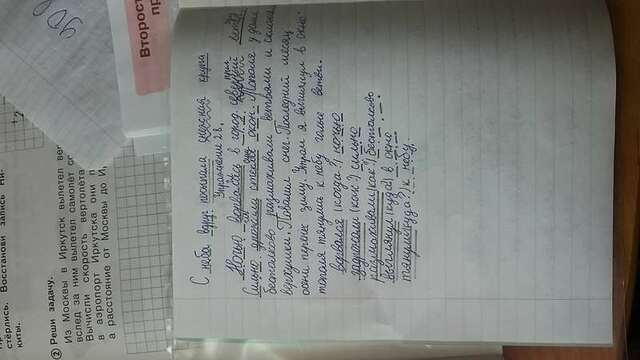 стёрлись. Восстанови запись Ни-
киты.
2 Реши задачу.
Из Москвы в Иркутск вылетел
вслед за ним вылетел самолёт
Вычисли скорость вертолёта
в аэропорт Иркутска они п
а расстояние от Москвы до И
900
Второст
пр
С неба вдруг посыпала снежная крупа
Упражнение 28,
Ночью ворвался в город северный ветер
Сильно дрожали стёкла окон. Тополя у дома
бестолково размахивали ветвями и склоняли
верхушки. Повалил снег. Последний месяц
осени перенёс зиму. Утром я выглянул в окно.
тополя тянули к небу голые ветви.
ворвался (когда?) ночью
задрожали (как?) сильно
размахивали (как?) бестолково
выглянул (куда?) в окно
тянули (куда?) к небу.